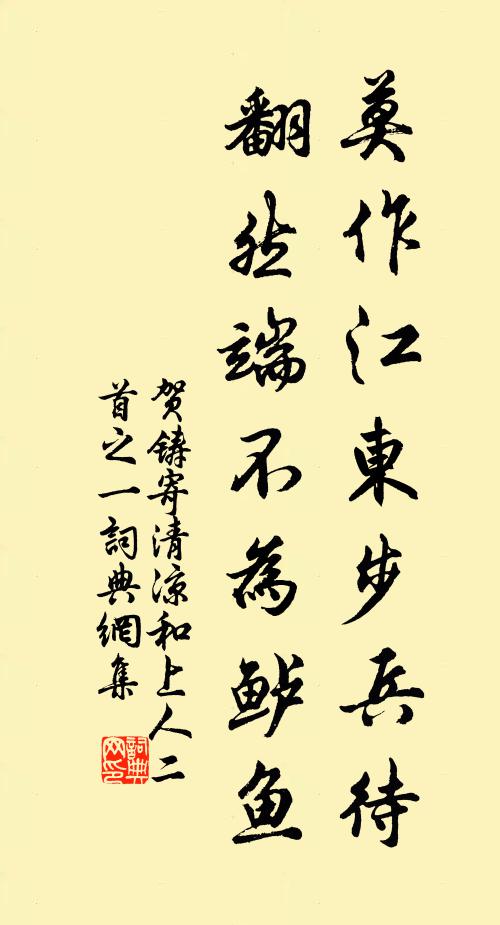 莫作江東步兵待
翻然端不為鲈魚
贺鑄寄清凉和上人二
首之一詞典網集
詞典
网印